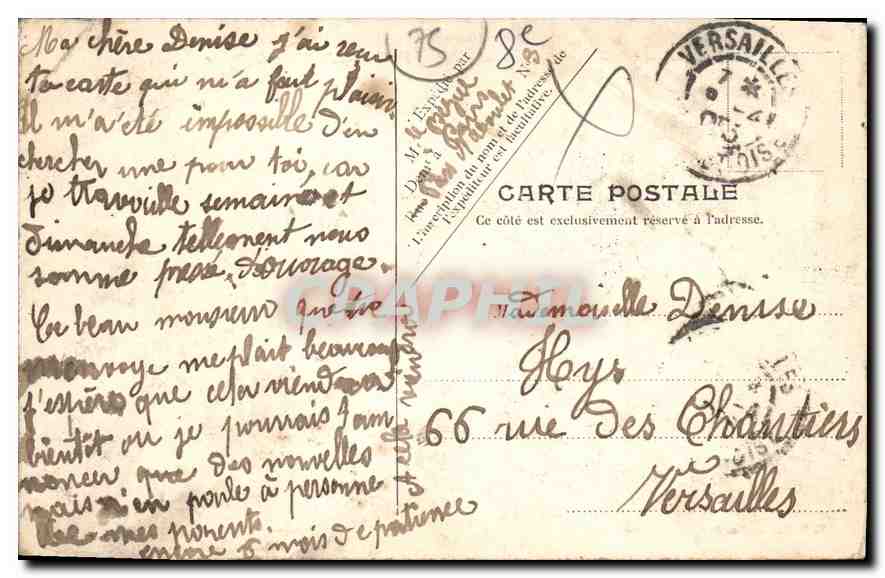 Ma chère Denise j'ai reçu
ta carte qui m'a fait plaisir
Il m'a été impossible d'en
chercher une pour toi, car
je travaille semaine et
Dimanche tellement nous
somme pressé d'ouvrage.
Ce beau monsieur que tu
m'envoye me plait beaucoup
j'espère que cela viendra
bientôt ou je pourrais t'an
noncer que des nouvelles
mais n'en parle à personne
de mes parents.
encore 6 mois de patience
et cela viendra
75
8e
Expédié par
M
Dem.t à Paris
Rue N° 3
L'inscription du nom et de l'adresse de
l'expéditeur est facultative.
VERSAILLES
CARTE POSTALE
Ce côté est exclusivement réservé à l'adresse.
CPAPHIL
Mademoiselle Denise
Hys
66 rue des Chantiers
Versailles